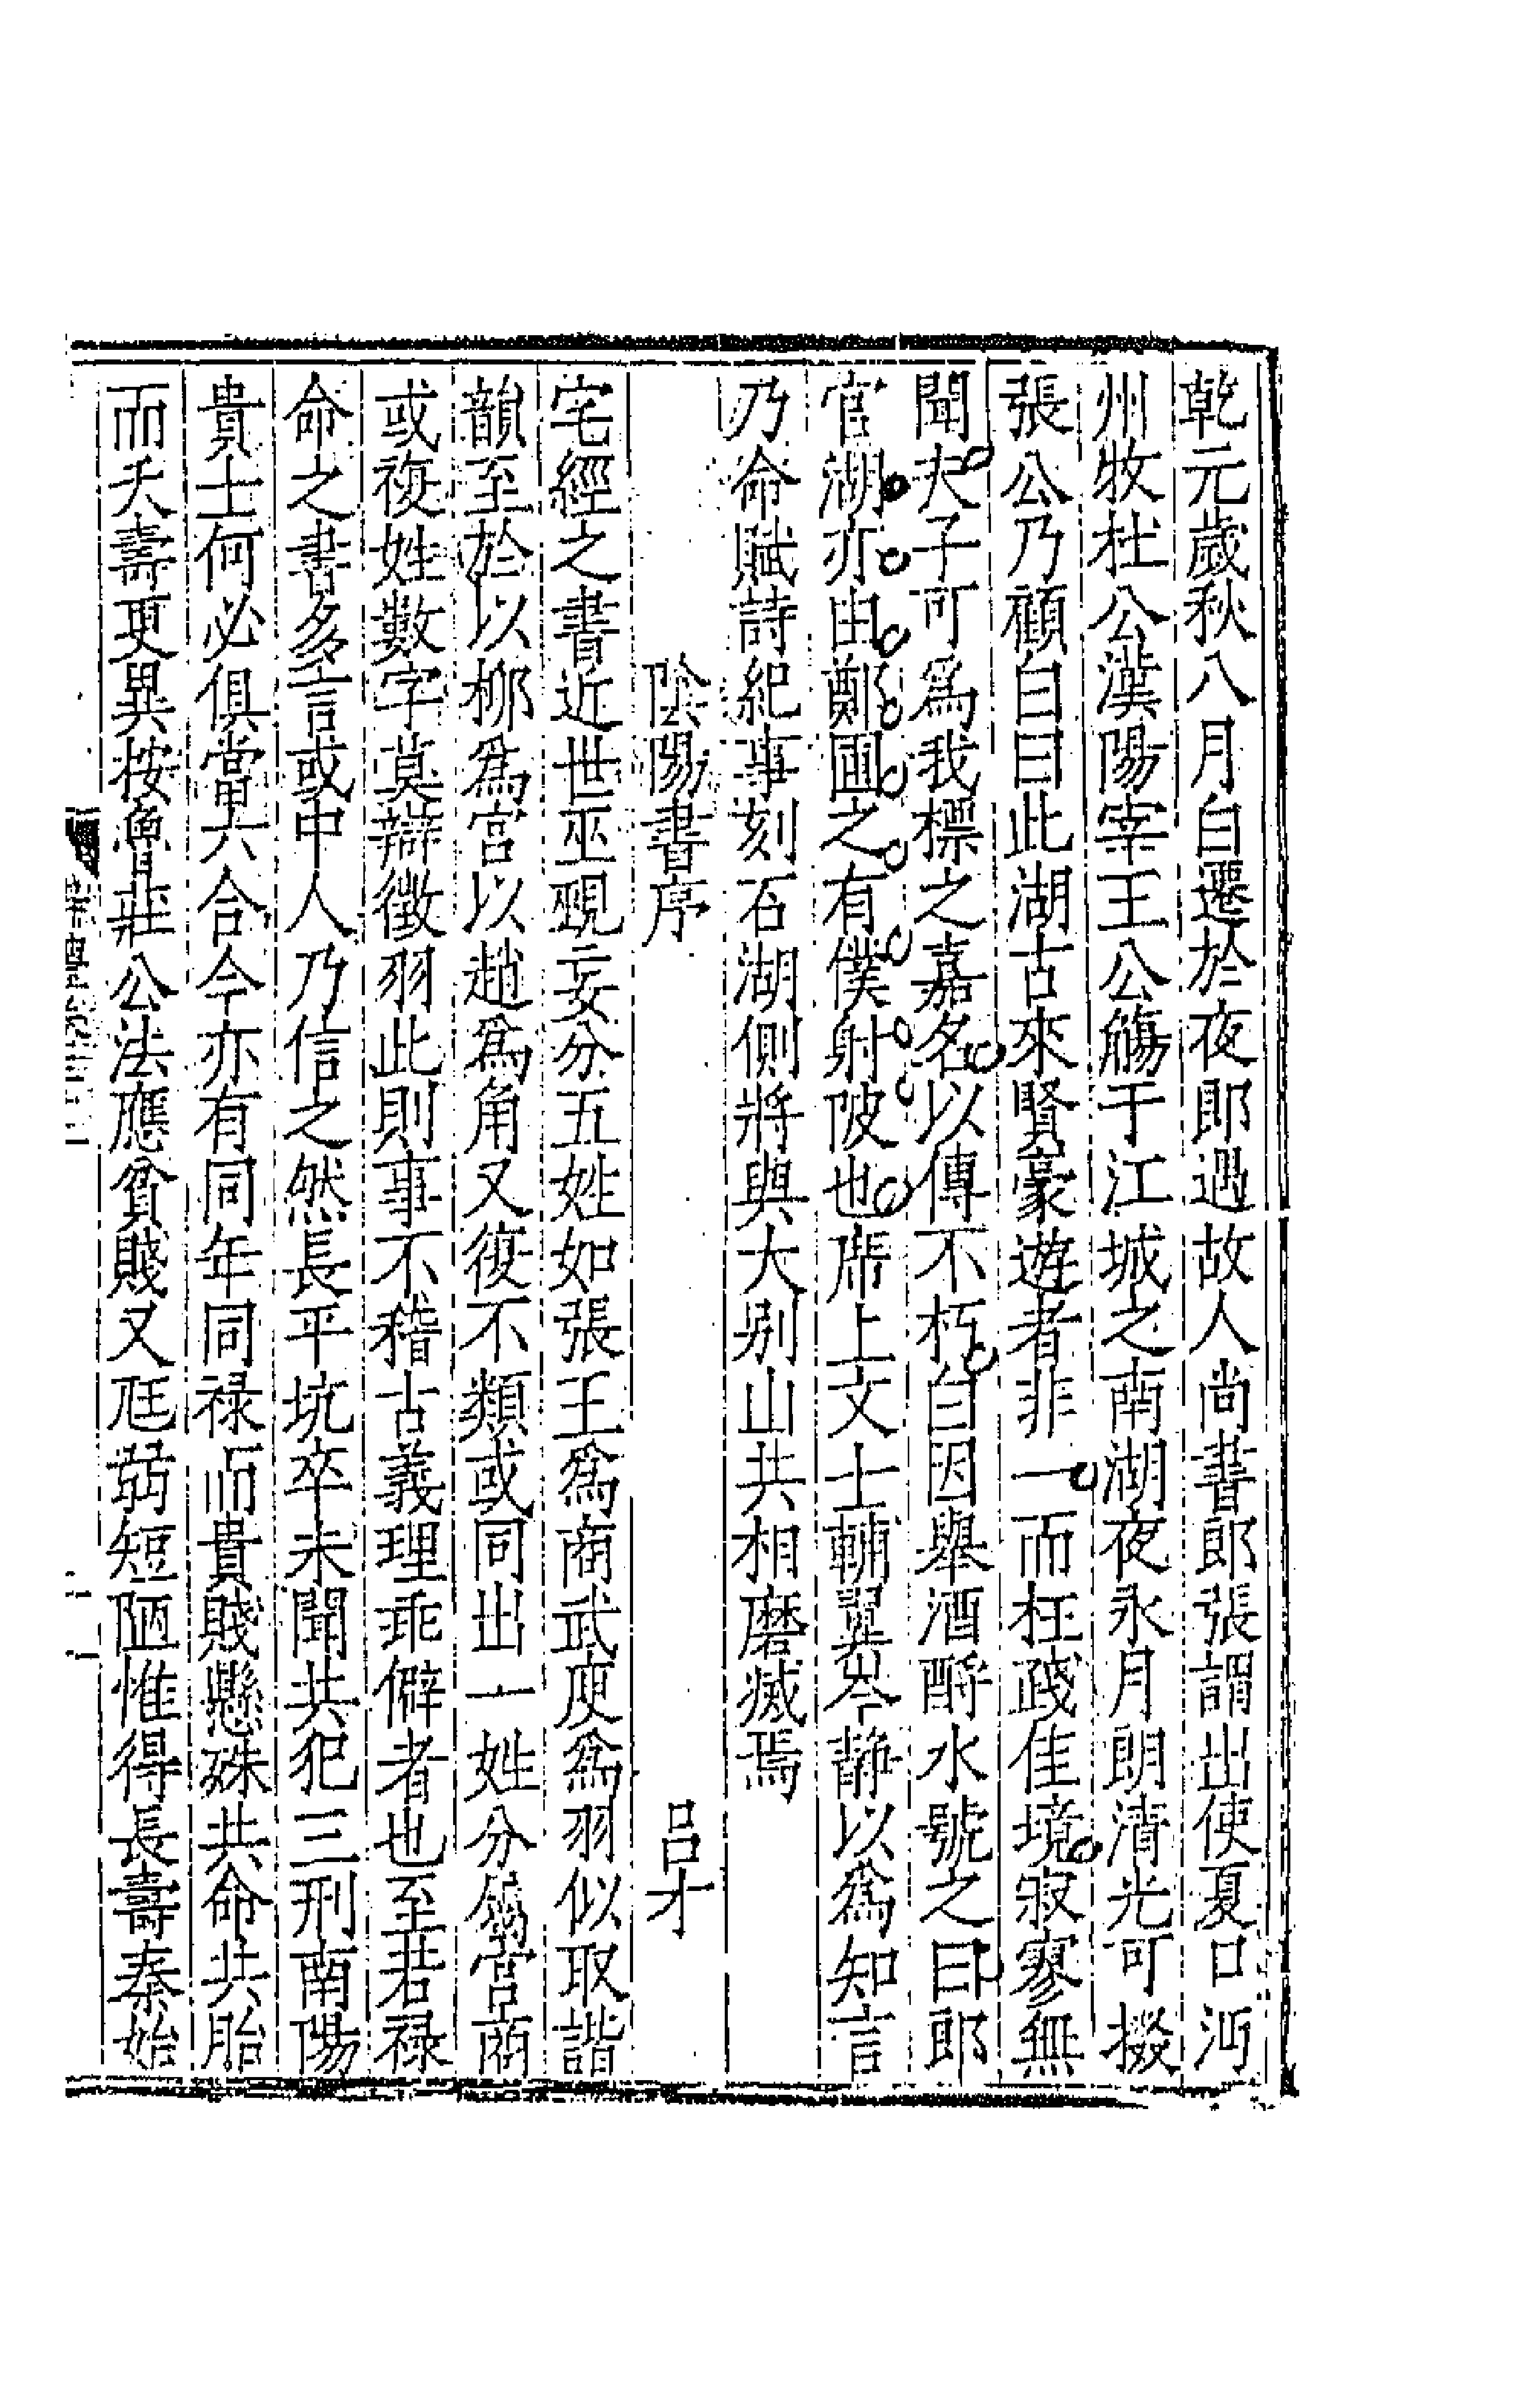 乾元歲秋八月白遷於夜郎遇故人尚書郎張謂出使夏口沔
州牧杜公漢陽宰王公觴于江城之南湖夜永月朗清光可掇
張公乃顧白曰此湖古來賢豪遊者非一而枉踐佳境寂寥無
聞夫子可爲我標之嘉名以傳不朽白因舉酒酹水號之曰郎
官湖亦由鄭圃之有僕射陂也席上文士輔翼岑静以爲知言
乃命賦詩紀事刻石湖側將與大别山共相磨滅焉
陰陽書序 呂才
宅經之書近世巫覡妄分五姓如張王爲商武庾爲羽似取諧
韻至於以栁爲宮以趙爲角又復不類或同出一姓分屬宮商
或複姓數字莫辯徵羽此則事不稽古義理乖僻者也至若禄
命之書多言或中人乃信之然長平坑卒未聞共犯三刑南陽
貴士何必俱當六合今亦有同年同禄而貴賤懸殊共命共胎
而夭壽更異按魯莊公法應貧賤又尫弱短陋惟得長壽秦始